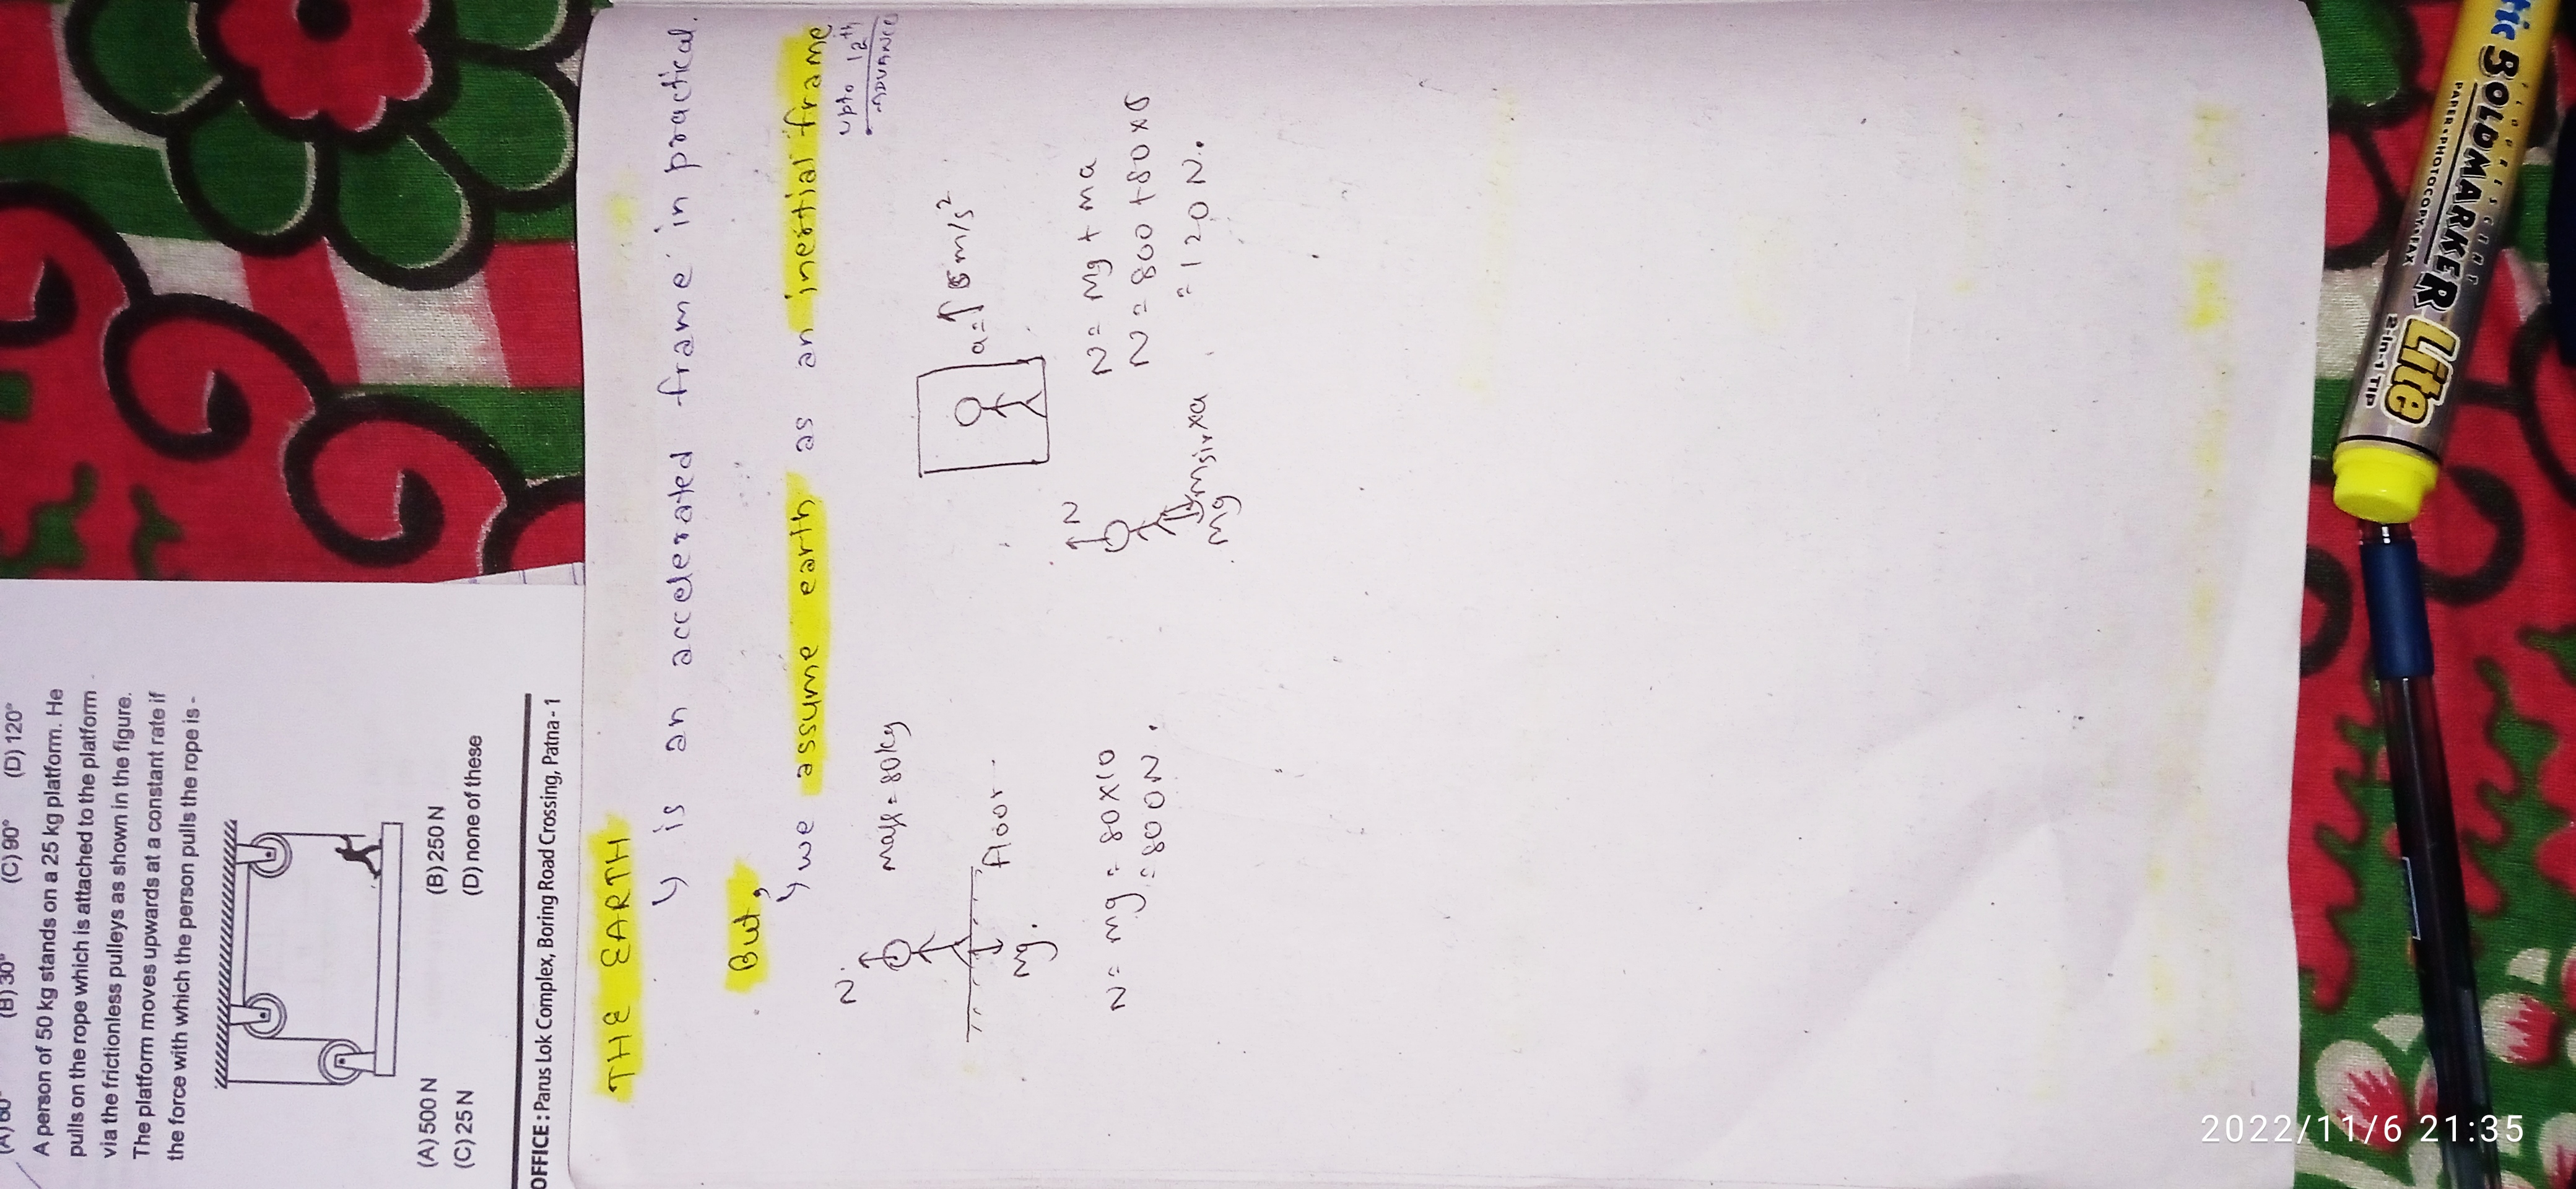 (A) 60° (B) 30° (C) 90° (D) 120°
A person of 50 kg stands on a 25 kg platform. He
pulls on the rope which is attached to the platform
via the frictionless pulleys as shown in the figure.
The platform moves upwards at a constant rate if
the force with which the person pulls the rope is -
(A) 500 N (B) 250 N
(C) 25 N (D) none of these
OFFICE : Parus Lok Complex, Boring Road Crossing, Patna - 1
THE EARTH
is an accelerated frame in practical.
But,
we assume earth as an inertial frame
upto 12th
ADVANCE
N
mass = 80 kg
floor
mg.
N = mg = 80 x 10
= 800 N.
a = ↑ 5 m/s²
N
mg
N = mg + ma
N = 800 + 80 x 5
= 120 N.
BOLDMARKER Lite
PAPER • PHOTOCOPY • FAX
2-in-1 TIP
2022/11/6 21:35